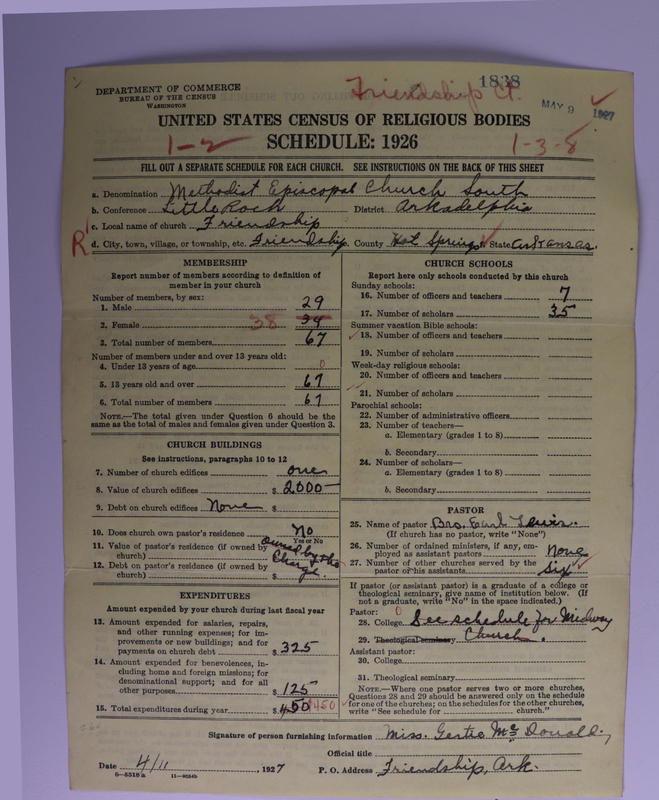 1838
DEPARTMENT OF COMMERCE
BUREAU OF THE CENSUS
WASHINGTON
Friendship Ct.
MAY 9 1927
UNITED STATES CENSUS OF RELIGIOUS BODIES
1-2 SCHEDULE: 1926 1-3-8
FILL OUT A SEPARATE SCHEDULE FOR EACH CHURCH. SEE INSTRUCTIONS ON THE BACK OF THIS SHEET
a. Denomination Methodist Episcopal Church South
b. Conference Little Rock District Arkadelphia
c. Local name of church Friendship
R d. City, town, village, or township, etc. Friendship County Hot Springs State Arkansas.
MEMBERSHIP
Report number of members according to definition of
member in your church
Number of members, by sex:
1. Male 29
2. Female 38 34
3. Total number of members 67
Number of members under and over 13 years old:
4. Under 13 years of age 0
5. 13 years old and over 67
6. Total number of members 67
NOTE.—The total given under Question 6 should be the
same as the total of males and females given under Question 3.
CHURCH BUILDINGS
See instructions, paragraphs 10 to 12
7. Number of church edifices one
8. Value of church edifices $ 2000-
9. Debt on church edifices None $
10. Does church own pastor's residence No
Yes or No
11. Value of pastor's residence (if owned by
church) $ owned by the
12. Debt on pastor's residence (if owned by
church) $ Charge.
EXPENDITURES
Amount expended by your church during last fiscal year
13. Amount expended for salaries, repairs,
and other running expenses; for im-
provements or new buildings; and for
payments on church debt $ 325
14. Amount expended for benevolences, in-
cluding home and foreign missions; for
denominational support; and for all
other purposes $ 125
15. Total expenditures during year $ 450 $450
CHURCH SCHOOLS
Report here only schools conducted by this church
Sunday schools:
16. Number of officers and teachers 7
17. Number of scholars 35
Summer vacation Bible schools:
18. Number of officers and teachers
19. Number of scholars
Week-day religious schools:
20. Number of officers and teachers
21. Number of scholars
Parochial schools:
22. Number of administrative officers
23. Number of teachers—
a. Elementary (grades 1 to 8)
b. Secondary
24. Number of scholars—
a. Elementary (grades 1 to 8)
b. Secondary
PASTOR
25. Name of pastor Bro. Earl Lewis.
(If church has no pastor, write "None")
26. Number of ordained ministers, if any, em-
ployed as assistant pastors None
27. Number of other churches served by the
pastor or his assistants Six
If pastor (or assistant pastor) is a graduate of a college or
theological seminary, give name of institution below. (If
not a graduate, write "No" in the space indicated.)
Pastor: 0
28. College See schedule for Midway
29. Theological seminary Church.
Assistant pastor:
30. College
31. Theological seminary
NOTE.—Where one pastor serves two or more churches,
Questions 28 and 29 should be answered only on the schedule
for one of the churches; on the schedules for the other churches,
write "See schedule for church."
Signature of person furnishing information Miss. Gertie McDonald,
Official title
Date 4/11, 1927 P. O. Address Friendship, Ark.